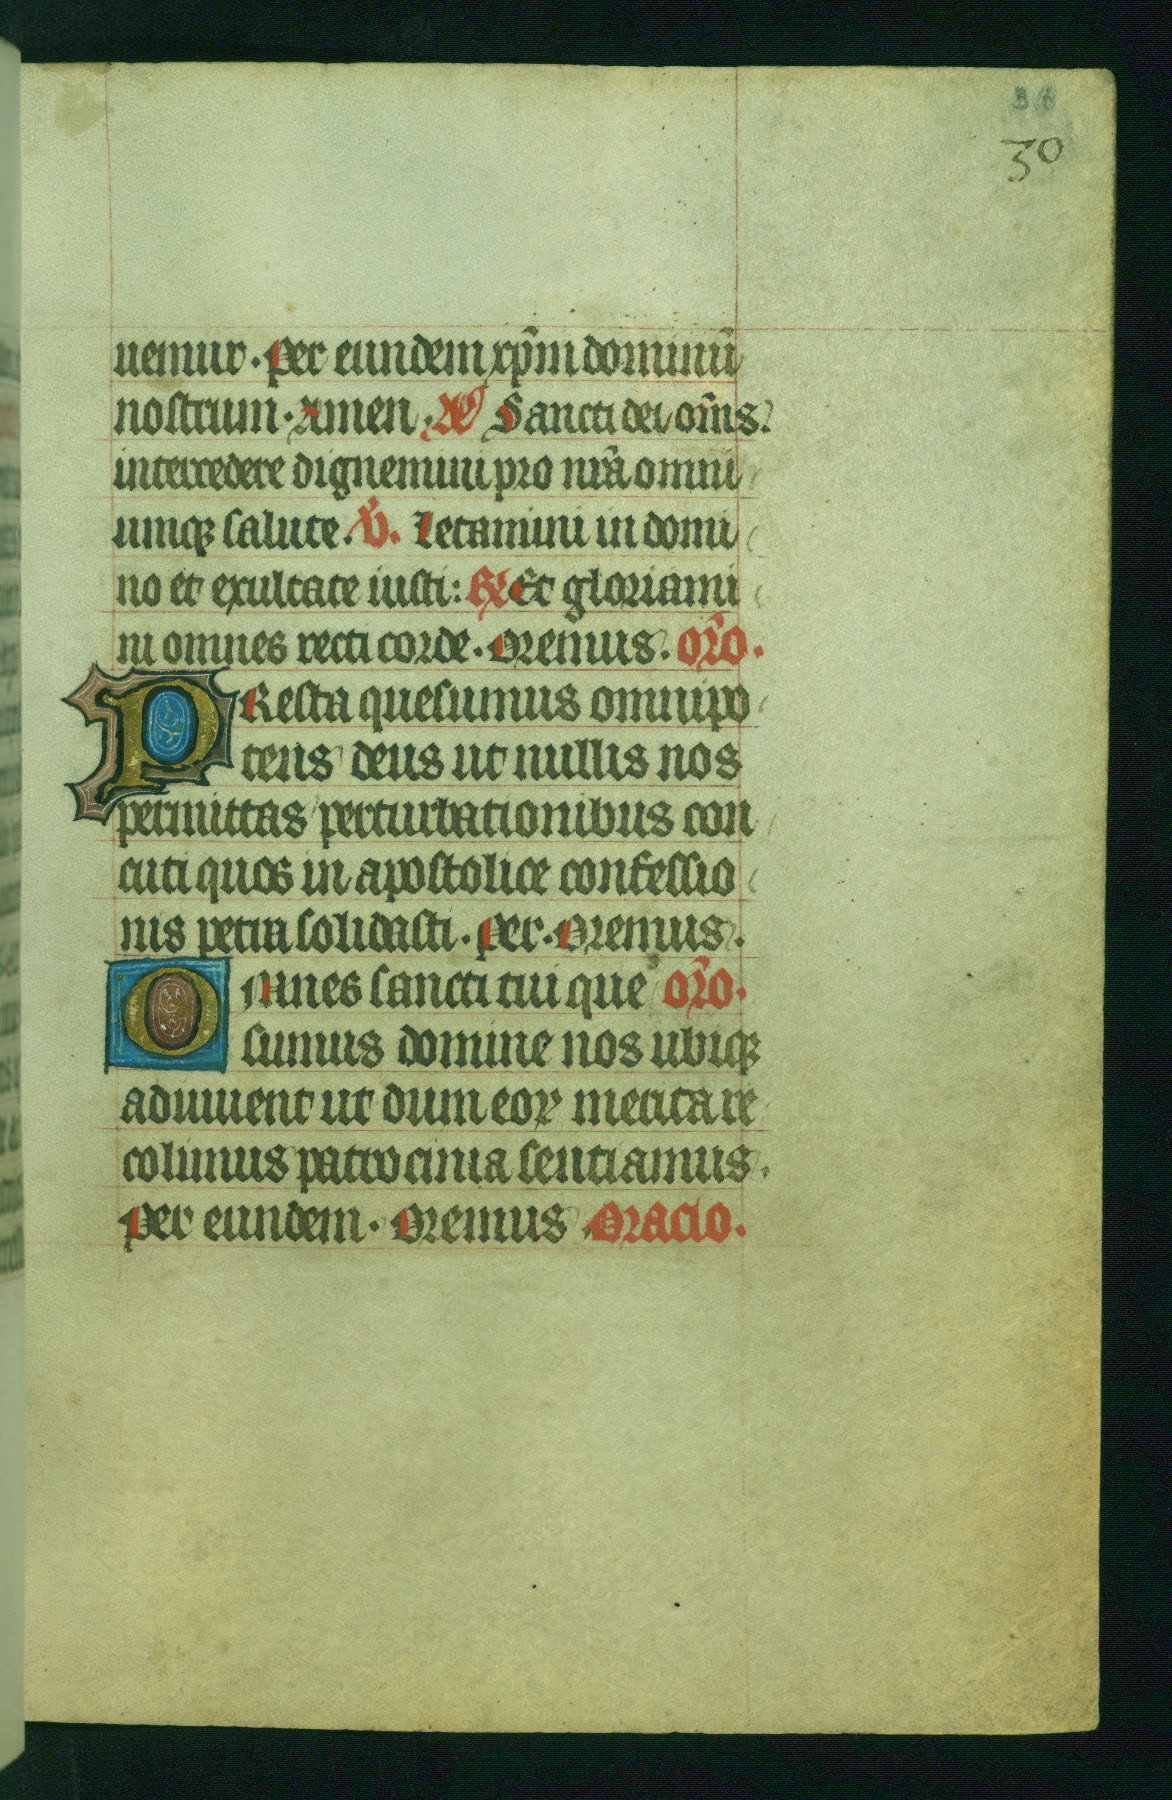 38
30
uemur. Per eundem xp̄m dominū
nostrum. Amen. Añ Sancti dei om̄s
intercedere dignemini pro nr̄a omni
umqꝫ salute. V̄. Letamini in domi
no et exultate iusti: ℟ Et gloriami
ni omnes recti corde. Oremus. or̄o.
PResta quesumus omnipo
tens deus ut nullis nos
permittas perturbationibus con
cuti quos in apostolice confessio
nis petra solidasti. Per. Oremus.
Omnes sancti tui que or̄o.
sumus domine nos ubiqꝫ
adiuuent ut dum eoꝝ merita re
colimus patrocinia sentiamus.
Per eundem. Oremus Oracio.